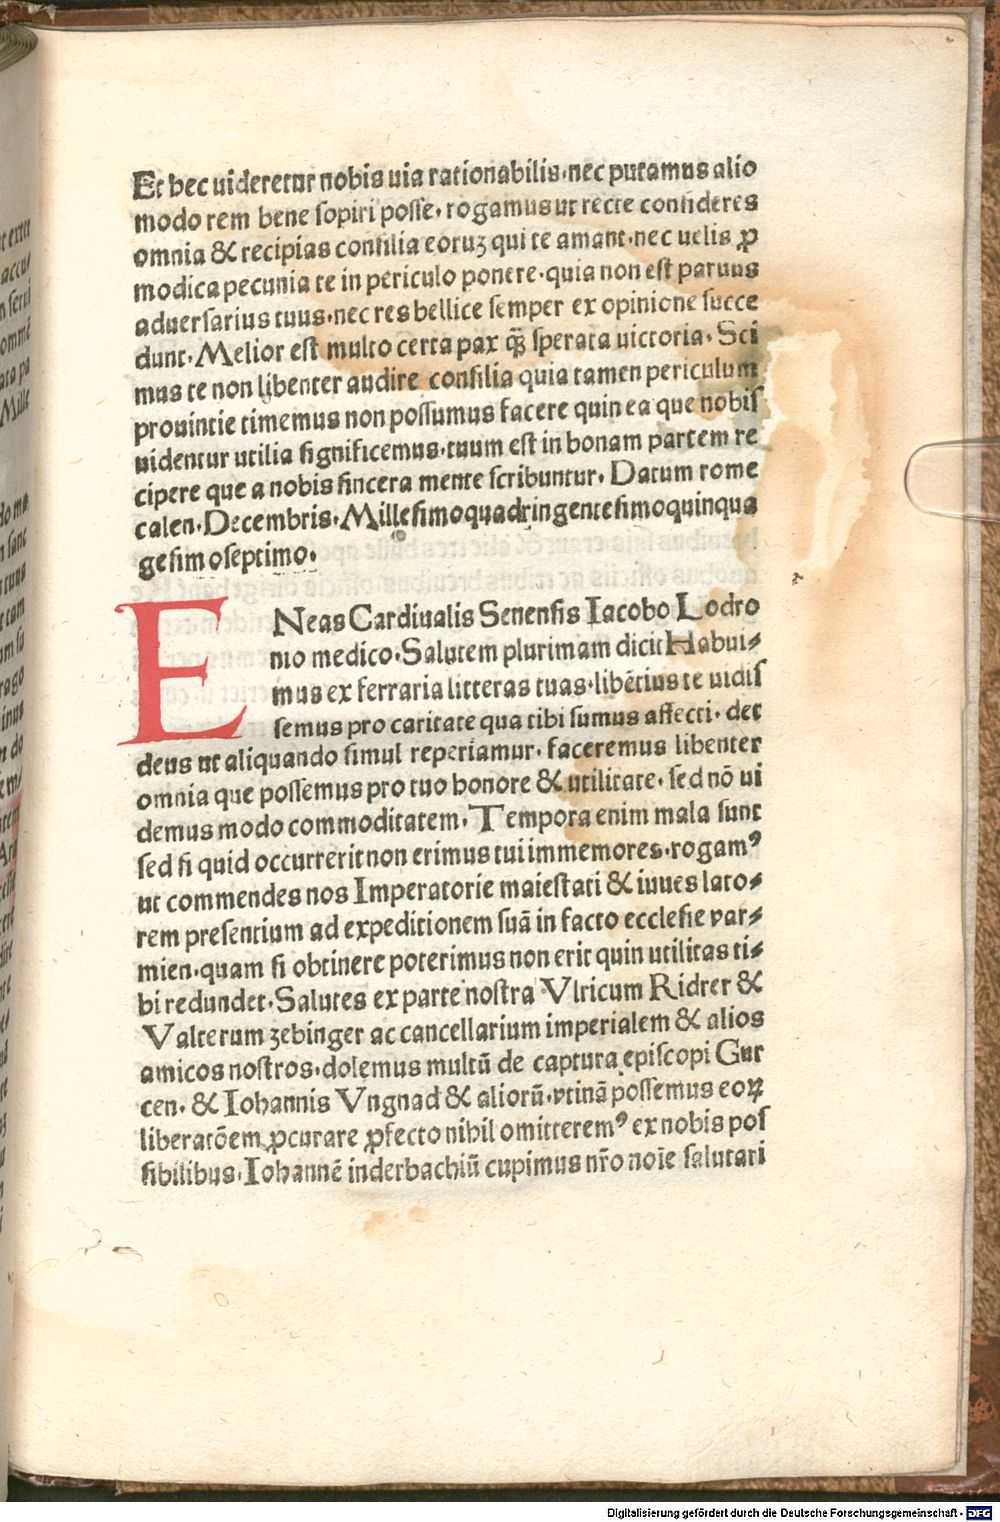 Et hec uideretur nobis uia rationabilis·nec putamus alio
modo rem bene sopiri posse·rogamus ut recte consideres
omnia & recipias consilia eoruꝫ qui te amant·nec uelis ꝓ
modica pecunia te in periculo ponere·quia non est paruus
aduersarius tuus·nec res bellice semper ex opinione succe
dunt·Melior est multo certa pax qꝫ̃ sperata uictoria·Sci
mus te non libenter audire consilia quia tamen periculum
prouintie timemus non possumus facere quin ea que nobis
uidentur utilia significemus·tuum est in bonam partem re
cipere que a nobis sincera mente scribuntur·Datum rome
calen·Decembris·Millesimoquadringentesimoquinqua
gesimoseptimo·
ENeas Cardiualis Senensis Iacobo Lodro
nio medico·Salutem plurimam dicit Habui⸗
mus ex ferraria litteras tuas·libẽtius te uidis
semus pro caritate qua tibi sumus affecti·det
deus ut aliquando simul reperiamur·faceremus libenter
omnia que possemus pro tuo honore & utilitate·sed nõ ui
demus modo commoditatem·Tempora enim mala sunt
sed si quid occurrerit non erimus tui immemores·rogamꝰ
ut commendes nos Imperatorie maiestati & iuues lato⸗
rem presentium ad expeditionem suã in facto ecclesie var⸗
mien·quam si obtinere poterimus non erit quin utilitas ti⸗
bi redundet·Salutes ex parte nostra Vlricum Ridrer &
Valterum zebinger ac cancellarium imperialem & alios
amicos nostros·dolemus multũ de captura episcopi Gur
cen·& Iohannis Vngnad & aliorũ·vtinã possemus eoꝝ
liberatõem ꝓcurare ꝓfecto nihil omitteremꝰ ex nobis pos
sibilibus·Iohannẽ inderbachiũ cupimus nr̃o noĩe salutari
Digitalisierung gefördert durch die Deutsche Forschungsgemeinschaft - DFG